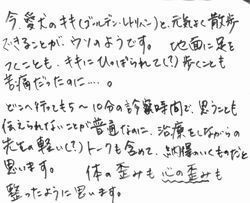 今、愛犬のキキ(ゴールデン・レトリバー)と、元気よく散歩
できることが、ウソのようです。 地面に足を
つくことも、キキにひっぱられて(?)歩くことも
苦痛だったのに・・・・。
どこへ行っても5〜10分の診察時間で、思うことも
伝えられないことが普通なのに、治療をしながらの
先生の軽い(?)トークも含めて、納得のいくものだと
思います。 体の歪みも心の歪みも
整ったように思います。